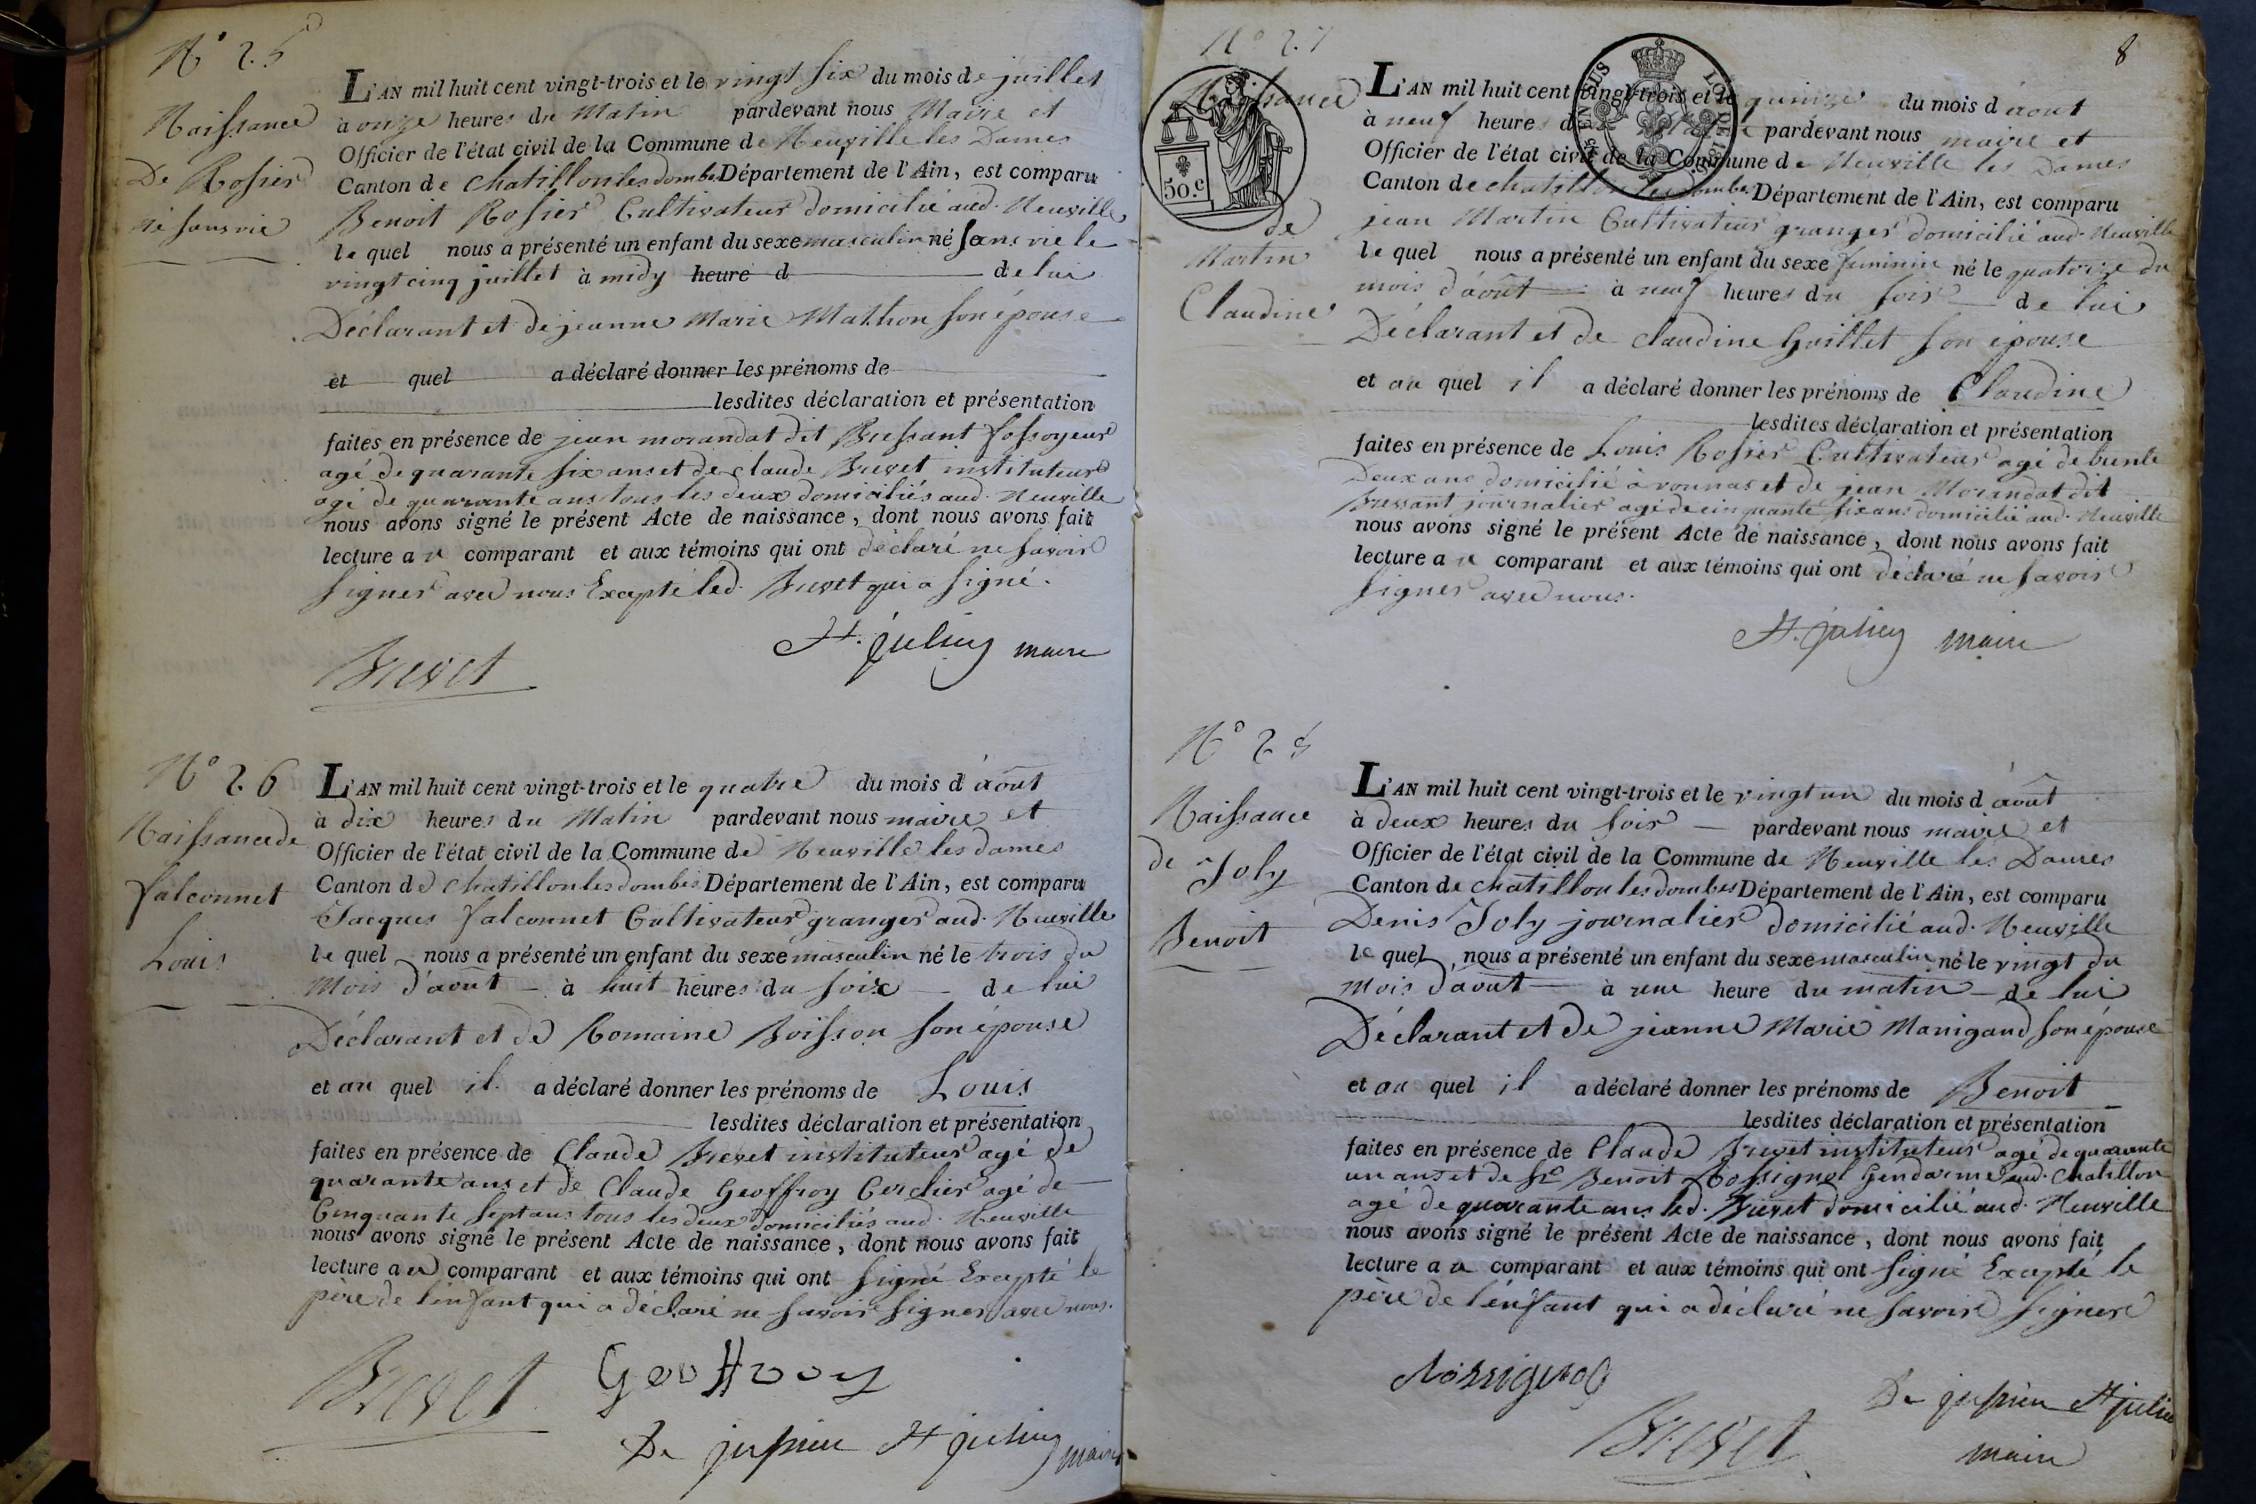 N° 25
Naissance
De Rosier
né sans vie
L'AN mil huit cent vingt-trois et le vingt six du mois de juillet
à onze heures du Matin pardevant nous Maire et
Officier de l'état civil de la Commune de Neuville les Dames
Canton de chatillon les dombes Département de l'Ain, est comparu
Benoit Rosier Cultivateur domicilié aud. Neuville
le quel nous a présenté un enfant du sexe masculin né sans vie le
vingt cinq juillet à midy heure d de lui
Déclarant et de jeanne Marie Mathon son épouse
et quel a déclaré donner les prénoms de
lesdites déclaration et présentation
faites en présence de jean morandat dit Bressant fossoyeur
agé de quarante six ans et de claude Brevet instituteur
agé de quarante ans tous les deux domiciliés aud. Neuville
nous avons signé le présent Acte de naissance, dont nous avons fait
lecture au comparant et aux témoins qui ont déclaré ne savoir
signer avec nous Excepté led. Brevet qui a signé.
St. julien maire
Brevet
N° 26
Naissance de
falconnet
Louis
L'AN mil huit cent vingt-trois et le quatre du mois d'août
à dix heures du Matin pardevant nous maire et
Officier de l'état civil de la Commune de Neuville les dames
Canton de chatillon les dombes Département de l'Ain, est comparu
Jacques falconnet Cultivateur granger aud. Neuville
le quel nous a présenté un enfant du sexe masculin né le trois du
Mois d'août à huit heures du soir de lui
Déclarant et de Romaine Boisson son épouse
et au quel il a déclaré donner les prénoms de Louis
lesdites déclaration et présentation
faites en présence de Claude Brevet instituteur agé de
quarante ans et de Claude Geoffroy Cerclier agé de
Cinquante sept ans tous les deux domiciliés aud. Neuville
nous avons signé le présent Acte de naissance, dont nous avons fait
lecture au comparant et aux témoins qui ont signé Excepté le
père de l'enfant qui a déclaré ne savoir signer avec nous.
Brevet Geoffroy
De jussieu St julien maire
8
N° 27
Naissance
de
Martin
Claudine
50.c
L'AN mil huit cent vingt-trois et le quinze du mois d'aout
à neuf heures du matin pardevant nous maire et
Officier de l'état civil de la Commune de Neuville les Dames
Canton de chatillon les dombes Département de l'Ain, est comparu
jean Martin Cultivateur granger domicilié aud. Neuville
le quel nous a présenté un enfant du sexe feminin né le quatorze du
mois d'août à neuf heures du soir de lui
Déclarant et de claudine Guillet son épouse
et au quel il a déclaré donner les prénoms de Claudine
lesdites déclaration et présentation
faites en présence de Louis Rosier Cultivateur agé de trente
Deux ans domicilié à vonnas et de jean Morandat dit
Bressant journalier agé de cinquante six ans domicilié aud. Neuville
nous avons signé le présent Acte de naissance, dont nous avons fait
lecture au comparant et aux témoins qui ont déclaré ne savoir
signer avec nous.
St. julien maire
N° 28
Naissance
de Joly
Benoit
L'AN mil huit cent vingt-trois et le vingt un du mois d'août
à deux heures du soir pardevant nous maire et
Officier de l'état civil de la Commune de Neuville les Dames
Canton de chatillon les dombes Département de l'Ain, est comparu
Denis Joly journalier domicilié aud. Neuville
le quel nous a présenté un enfant du sexe masculin né le vingt du
Mois d'août à une heure du matin de lui
Déclarant et de jeanne Marie Manigand son épouse
et au quel il a déclaré donner les prénoms de Benoit
lesdites déclaration et présentation
faites en présence de Claude Brevet instituteur agé de quarante
un ans et de Sr Benoit Rossignol Gendarme aud. Chatillon
agé de quarante ans led. Brevet domicilié aud. Neuville
nous avons signé le présent Acte de naissance, dont nous avons fait
lecture au comparant et aux témoins qui ont signé Excepté le
père de l'enfant qui a déclaré ne savoir signer
Rossignol
De jussieu St julien
Brevet maire